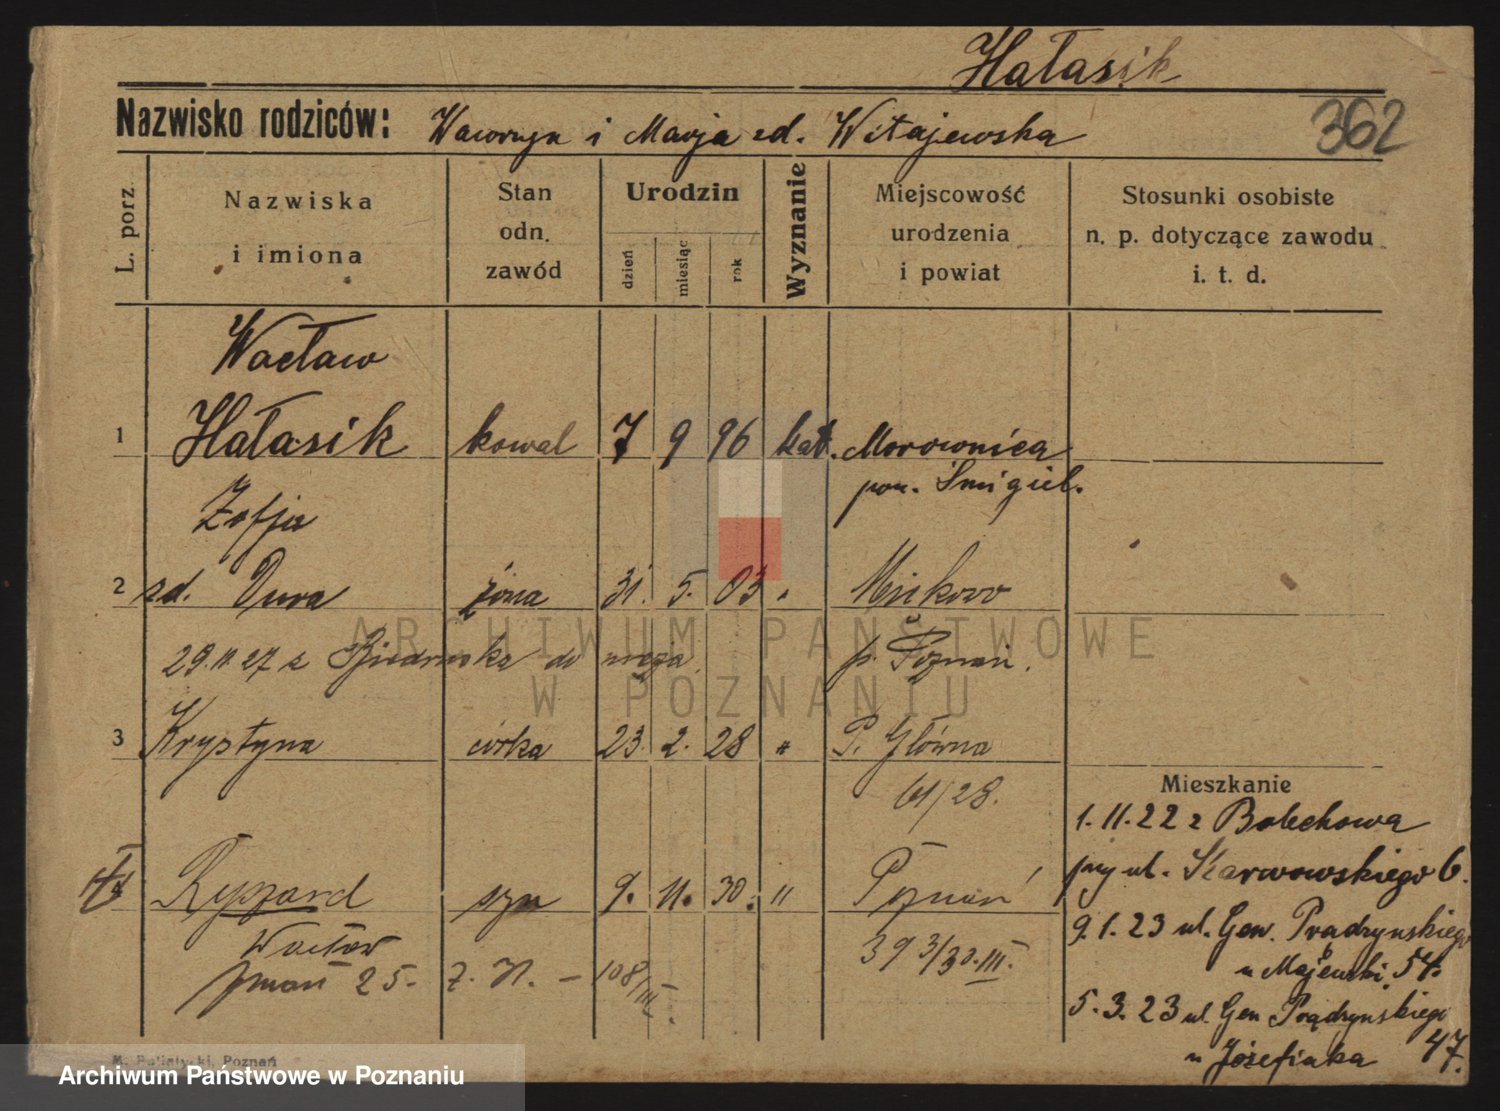 Hałasik
Nazwisko rodziców: Wawrzyn i Marja zd. Witajewska
362
L. porz.
Nazwiska
i imiona
Stan
odn.
zawód
Urodzin
dzień
miesiąc
rok
Wyznanie
Miejscowość
urodzenia
i powiat
Stosunki osobiste
n. p. dotyczące zawodu
i. t. d.
Wacław
1 Hałasik kowal 7 9 96 kat. Morownica
pow. Śmigiel.
Zofja
2 zd. Dura żona 31. 5. 03 „
p. Poznań.
29.11.27 z do męża
3 Krystyna córka 23. 2. 28 „ P. Główna
61/28.
Mieszkanie
1.11.22 z Bolechowa
przy ul. Szarwowskiego 6.
Ryszard syn 9. 11. 30. „ Poznań
Wacław
39 3/30.III.
25. 7. 31. – 108/III.
9.1.23 ul. Gen. Prądzyńskiego
u Majewski. 54.
5.3.23 ul. Gen Prądzyńskiego
u Józefiaka 47.
M. Poznań
ARCHIWUM PAŃSTWOWE
W POZNANIU
Archiwum Państwowe w Poznaniu